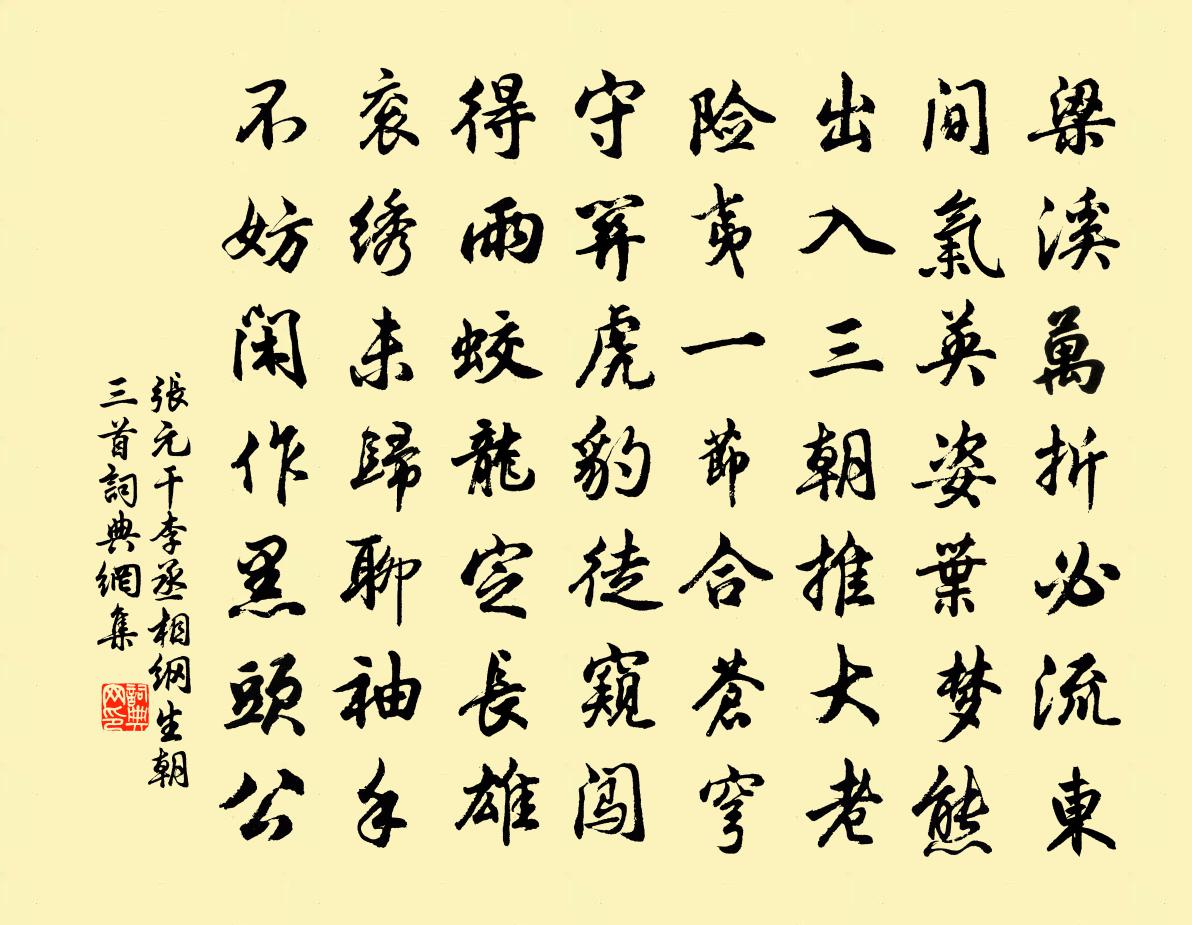 梁溪萬折必流東
间氣英姿葉梦熊
出入三朝推大老
险夷一節合蒼穹
守關虎豹徒窺闯
得雨蛟龍定長雄
衮绣未歸聊袖手
不妨闲作黑頭公
張元干李丞相纲生朝
三首詞典網集
詞典
网印